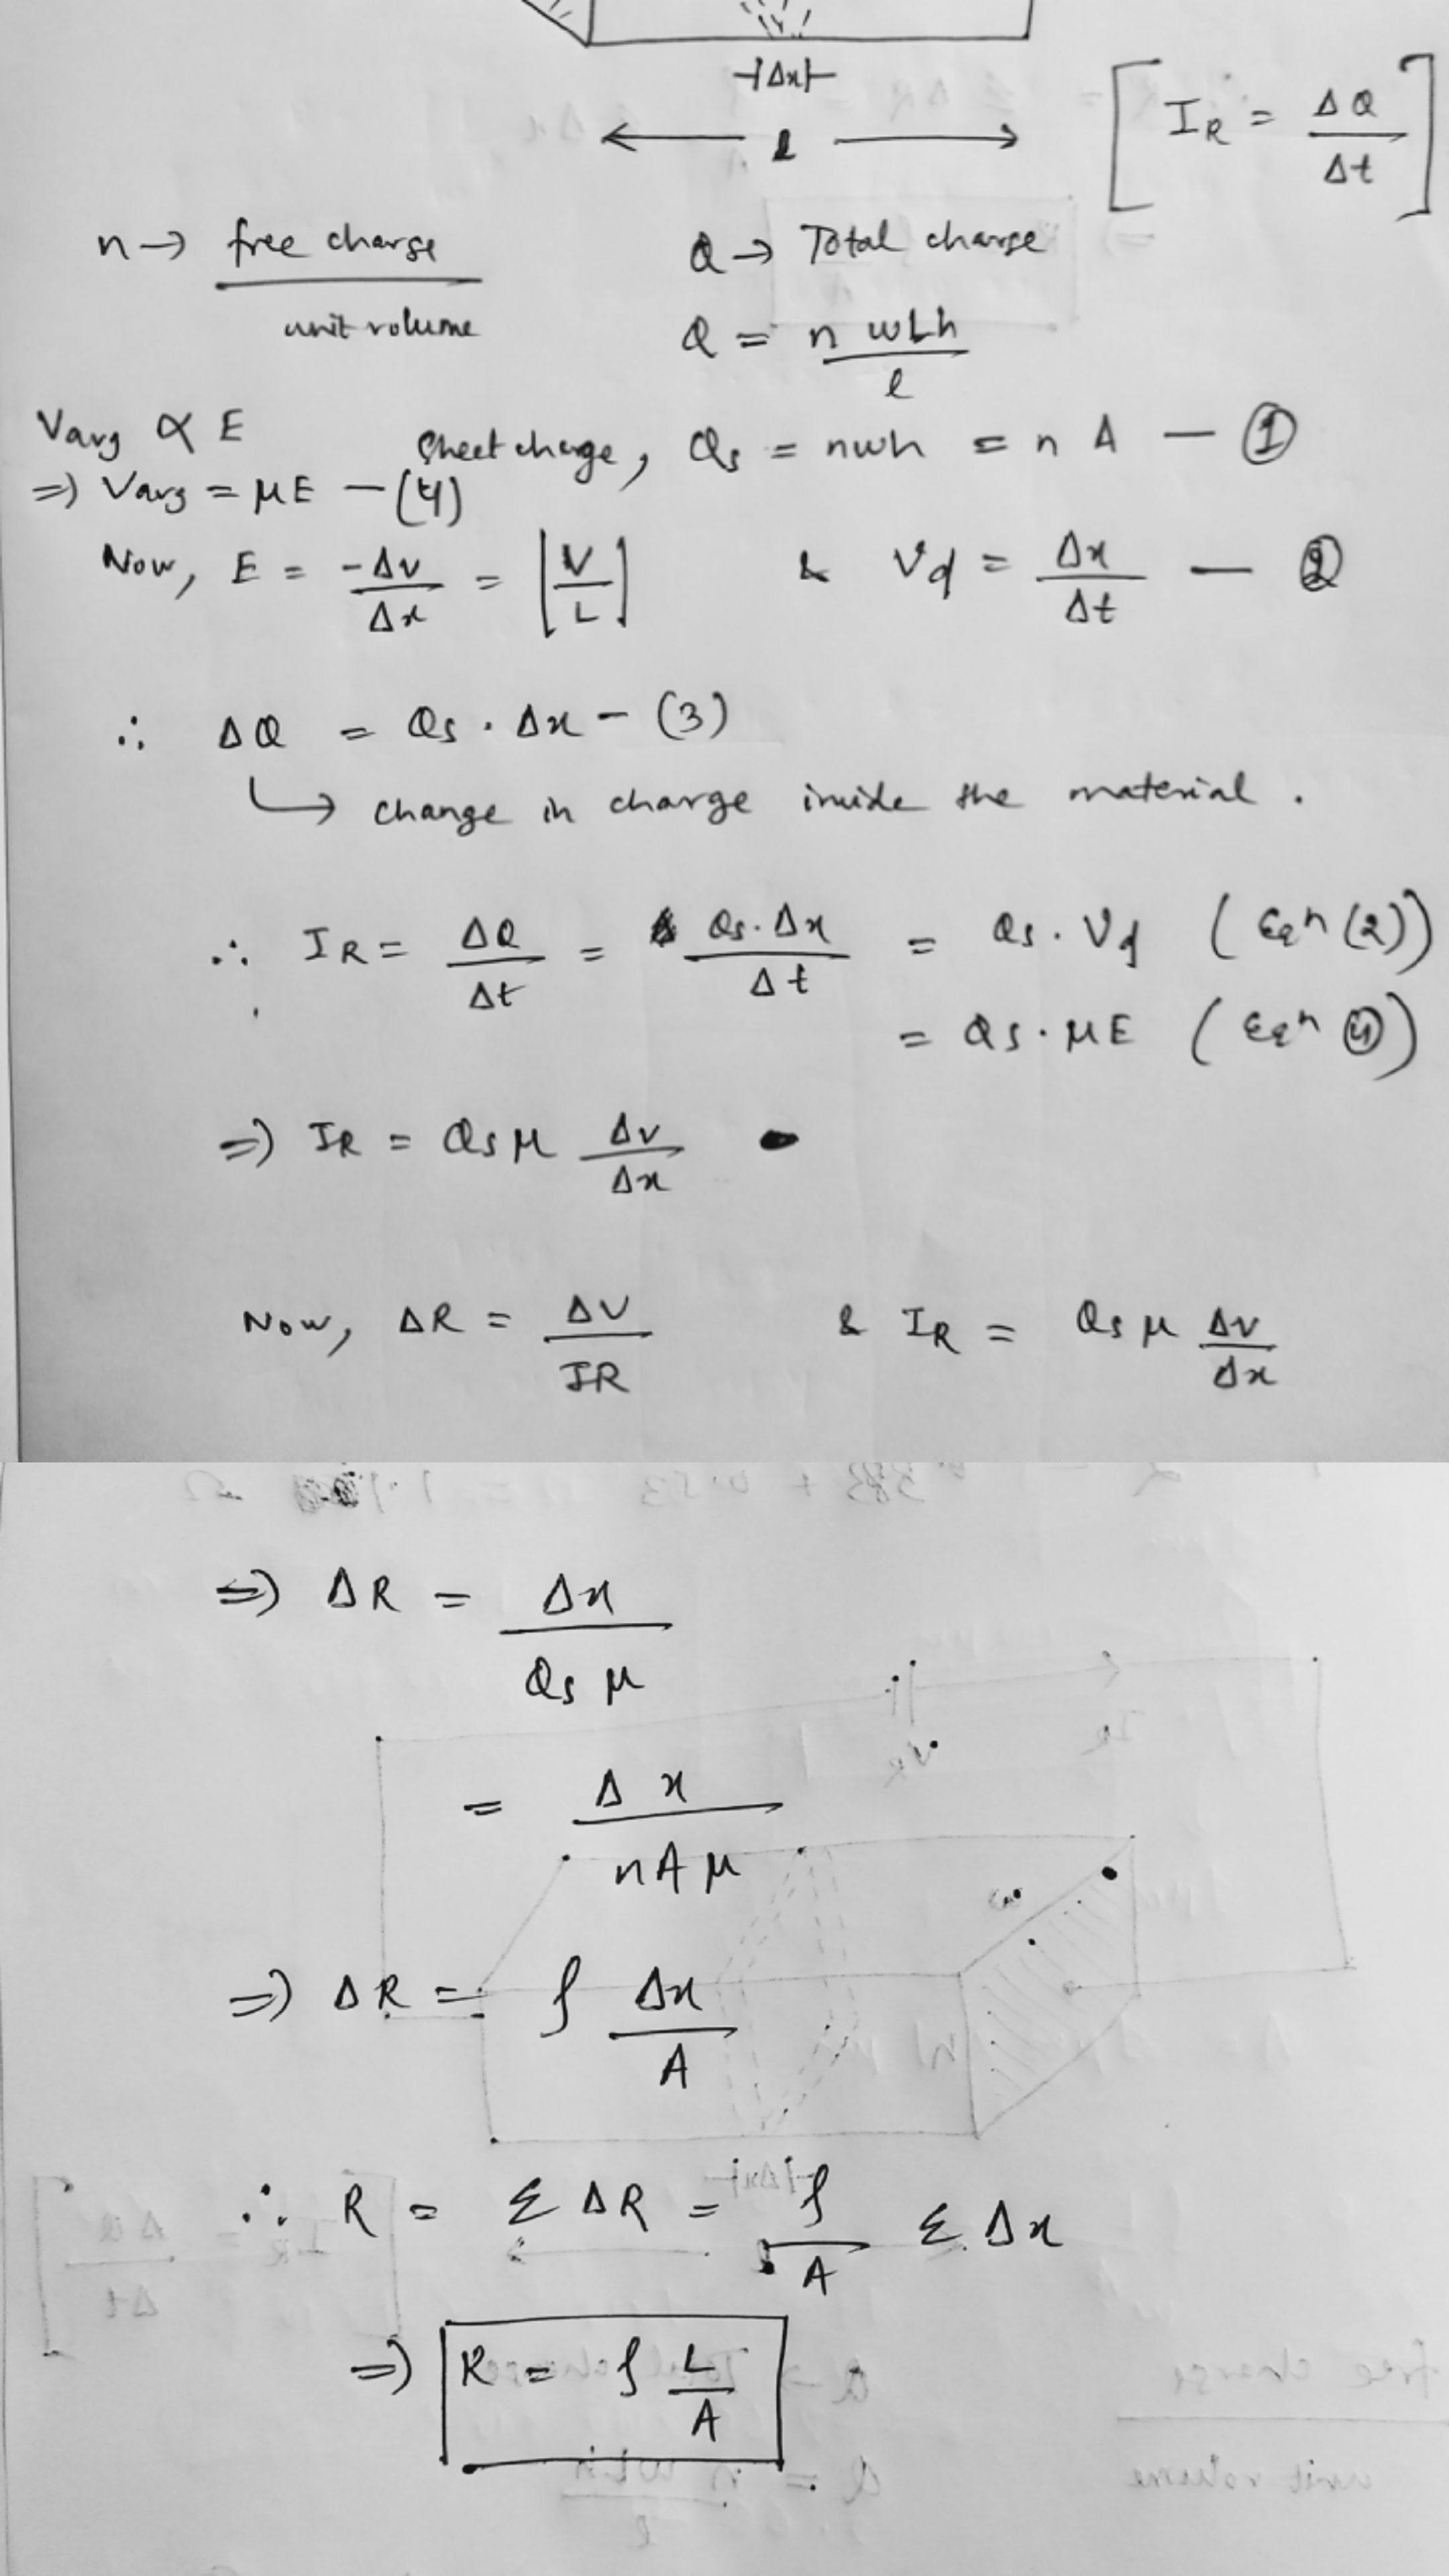 ⊣Δx⊢
← l →
[ I_R = ΔQ/Δt ]
n → free charge / unit volume
Q → Total charge
Q = n wLh / l
Vavg ∝ E
Sheet charge, Qs = nwh = n A — ①
⇒ Vavg = μE — (4)
Now, E = -Δv/Δx = |V/L|
& Vd = Δx/Δt — ②
∴ ΔQ = Qs · Δx — (3)
↳ change in charge inside the material.
∴ I_R = ΔQ/Δt = Qs·Δx/Δt = Qs · Vd (Eqⁿ (2))
= Qs · μE (Eqⁿ ④)
⇒ I_R = Qs μ Δv/Δx
Now, ΔR = ΔV/IR & I_R = Qs μ Δv/Δx
⇒ ΔR = Δx / Qs μ
= Δx / nAμ
⇒ ΔR = ρ Δx/A
∴ R = Σ ΔR = ρ/A Σ Δx
⇒ R = ρ L/A